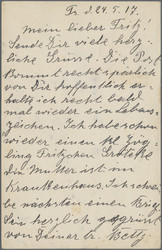 Fr. d. 24. 5. 17.
Mein lieber Fritz!
Sende Dir viele herz-
liche Grüsse. Die Post
kommt recht spärlich
von Dir hoffentlich er-
halte ich recht bald
mal wieder ein Lebens-
zeichen. Ich habe schon
wieder einen kl. Zög-
ling Fritzchen
die Mutter ist im
Krankenhaus. Ich schrei-
be nächstens einen Brief
Sei herzlich gegrüsst
von Deiner tr. Betty.